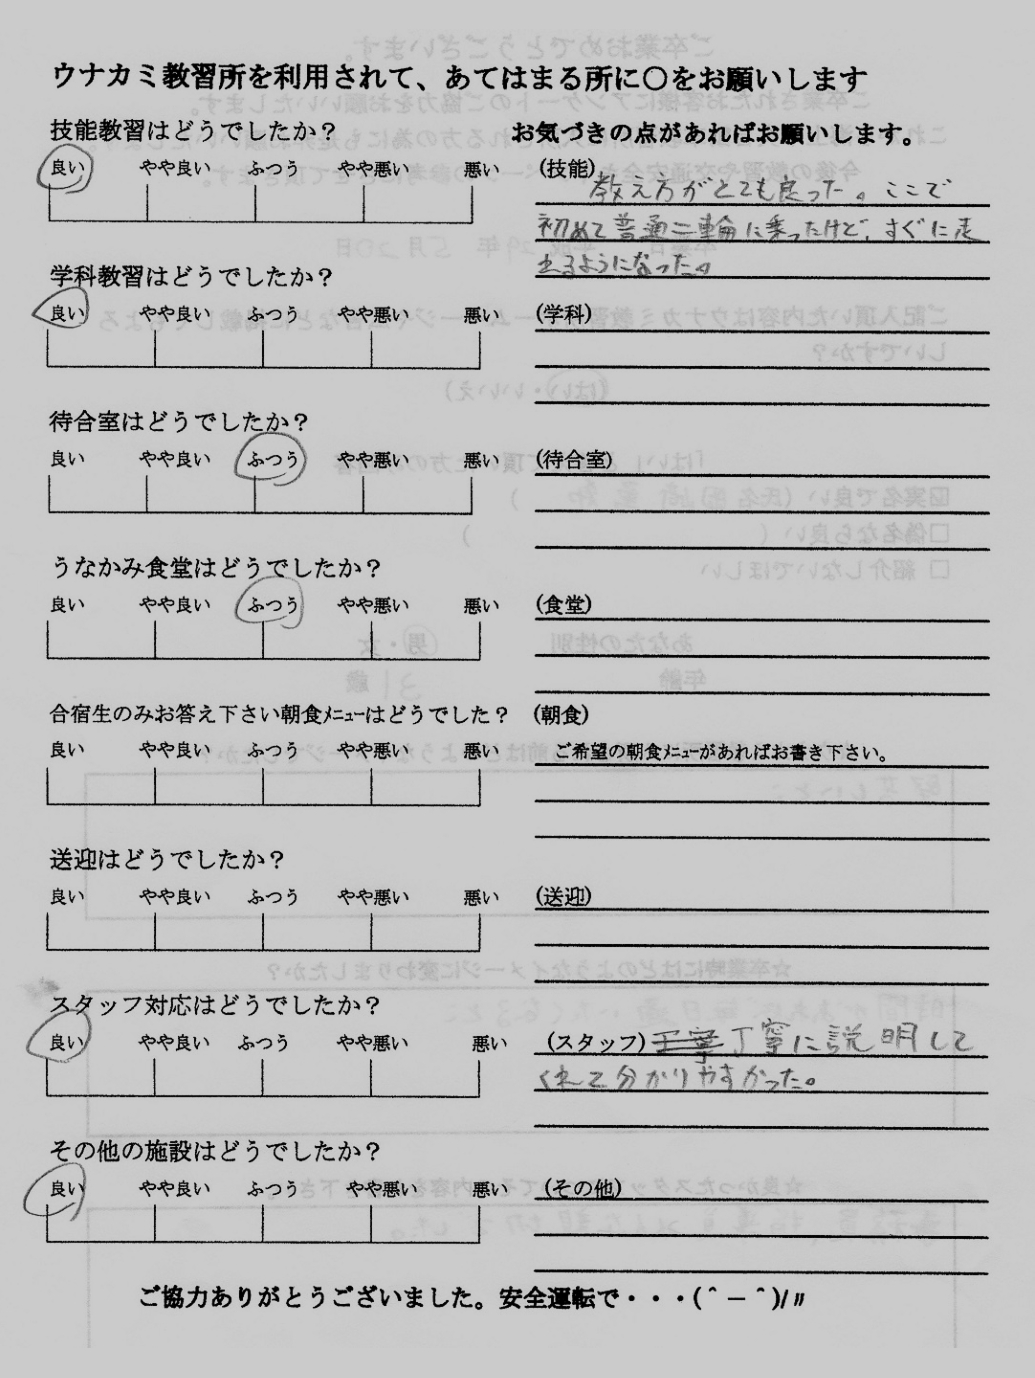 ウナカミ教習所を利用されて、あてはまる所に〇をお願いします
技能教習はどうでしたか？
お気づきの点があればお願いします。
良い やや良い ふつう やや悪い 悪い
(技能)
教え方がとても良った。ここで
初めて普通二輪に乗ったけど、すぐに走
れるようになった。
学科教習はどうでしたか？
良い やや良い ふつう やや悪い 悪い
(学科)
待合室はどうでしたか？
良い やや良い ふつう やや悪い 悪い
(待合室)
うなかみ食堂はどうでしたか？
良い やや良い ふつう やや悪い 悪い
(食堂)
合宿生のみお答え下さい朝食ﾒﾆｭｰはどうでした？
(朝食)
良い やや良い ふつう やや悪い 悪い
ご希望の朝食ﾒﾆｭｰがあればお書き下さい。
送迎はどうでしたか？
良い やや良い ふつう やや悪い 悪い
(送迎)
スタッフ対応はどうでしたか？
良い やや良い ふつう やや悪い 悪い
(スタッフ) 丁寧に説明して
くれて分かりやすかった。
その他の施設はどうでしたか？
良い やや良い ふつう やや悪い 悪い
(その他)
ご協力ありがとうございました。安全運転で・・・(＾－＾)/〃